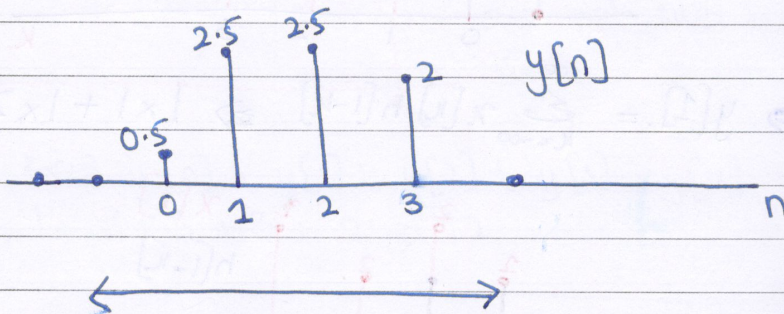 2.5 2.5
y[n]
2
0.5
0 1 2 3
n